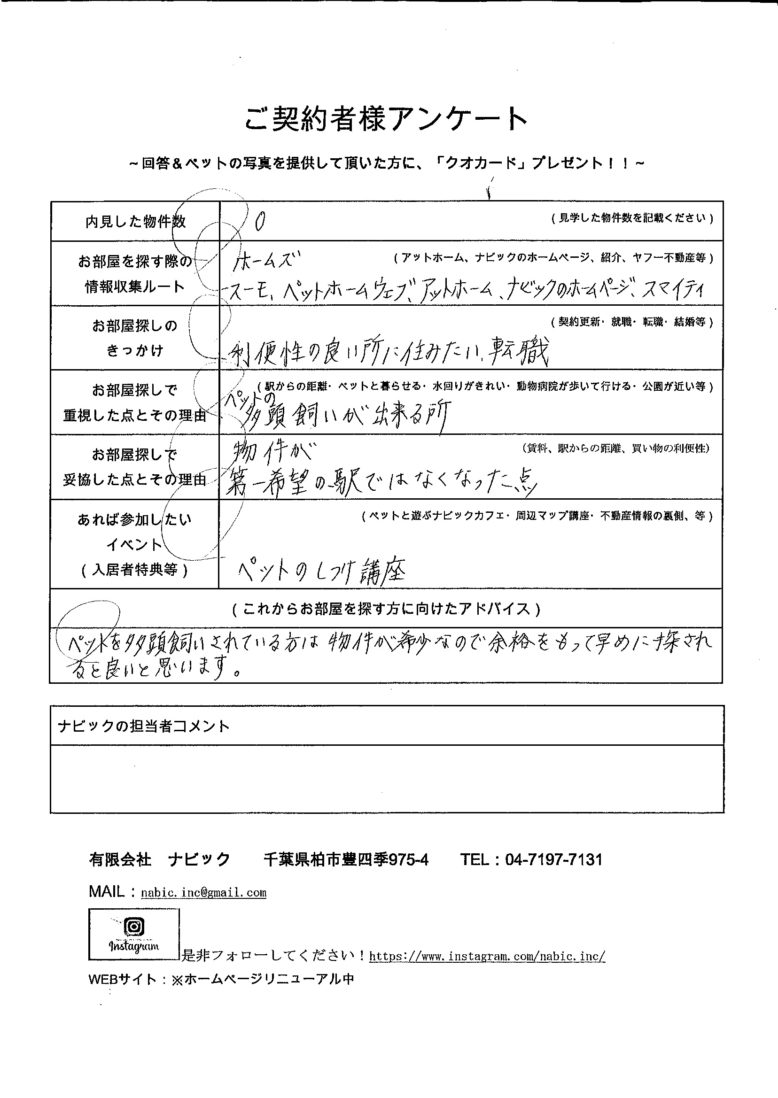 ご契約者様アンケート
~回答＆ペットの写真を提供して頂いた方に、「クオカード」プレゼント！！~
内見した物件数
0
(見学した物件数を記載ください)
お部屋を探す際の
情報収集ルート
(アットホーム、ナビックのホームページ、紹介、ヤフー不動産等)
ホームズ
スーモ、ペットホームウェブ、アットホーム、ナビックのホームページ、スマイティ
お部屋探しの
きっかけ
(契約更新・就職・転職・結婚等)
利便性の良い所に住みたい、転職
お部屋探しで
重視した点とその理由
(駅からの距離・ペットと暮らせる・水回りがきれい・動物病院が歩いて行ける・公園が近い等)
ペットの
多頭飼いが出来る所
お部屋探しで
妥協した点とその理由
(賃料、駅からの距離、買い物の利便性)
物件が
第一希望の駅ではなくなった点
あれば参加したい
イベント
(入居者特典等)
(ペットと遊ぶナビックカフェ・周辺マップ講座・不動産情報の裏側、等)
ペットのしつけ講座
(これからお部屋を探す方に向けたアドバイス)
ペットを多頭飼いされている方は物件が希少なので余裕をもって早めに探され
ると良いと思います。
ナビックの担当者コメント
有限会社 ナビック 千葉県柏市豊四季975-4 TEL：04-7197-7131
MAIL：nabic.inc@gmail.com
Instagram
是非フォローしてください！https://www.instagram.com/nabic.inc/
WEBサイト：※ホームページリニューアル中